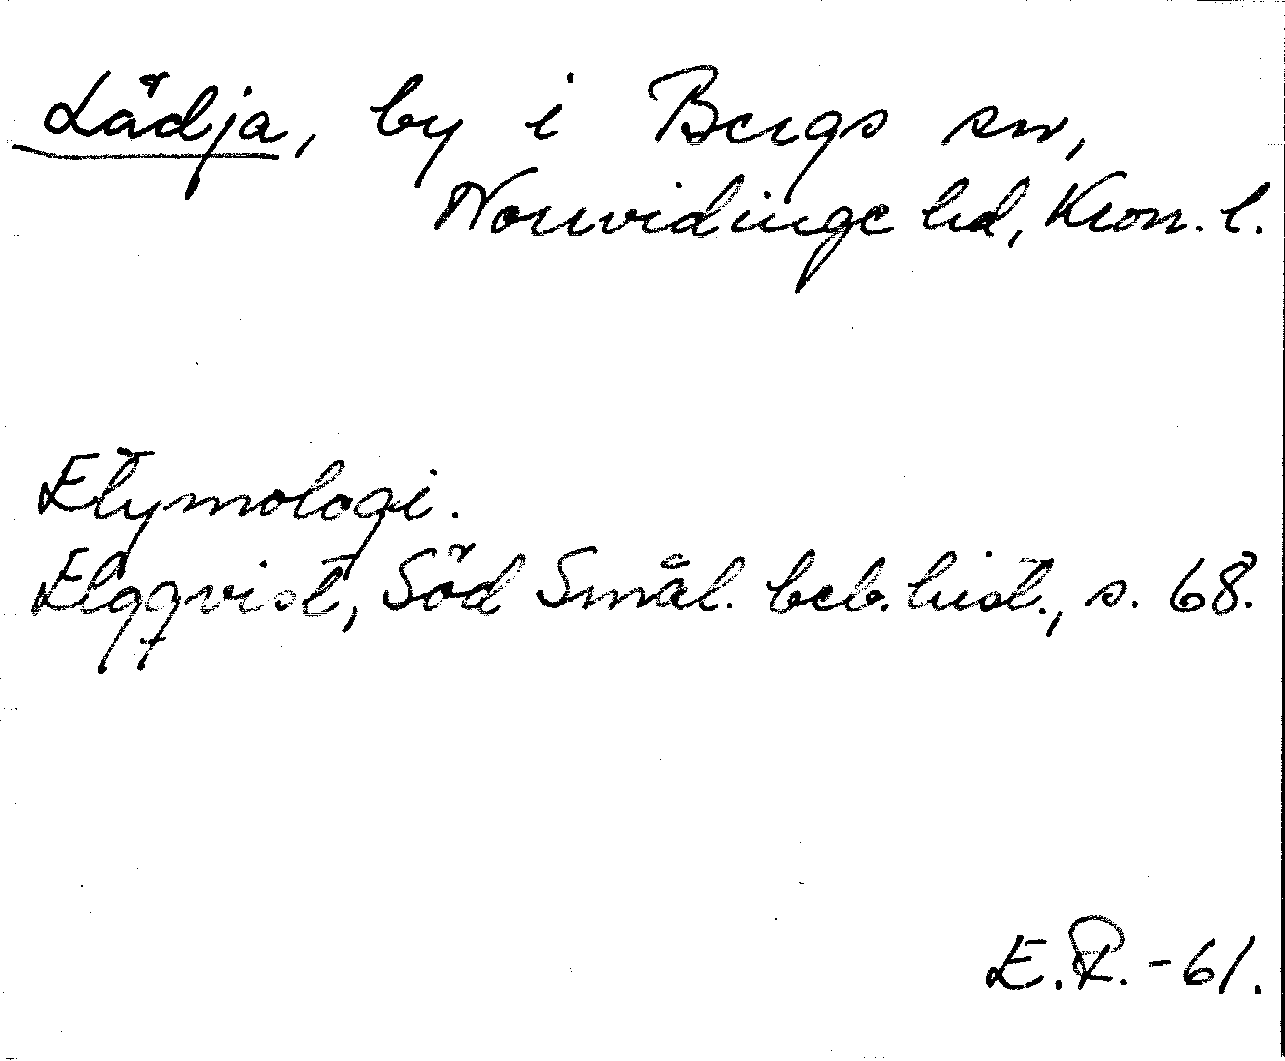 Lädja, by i Bergs sn,
Norrvidinge hd, Kron. l.
Etymologi.
Elgqvist, Söd Smål. beb. hist., s. 68.
E.R.-61.